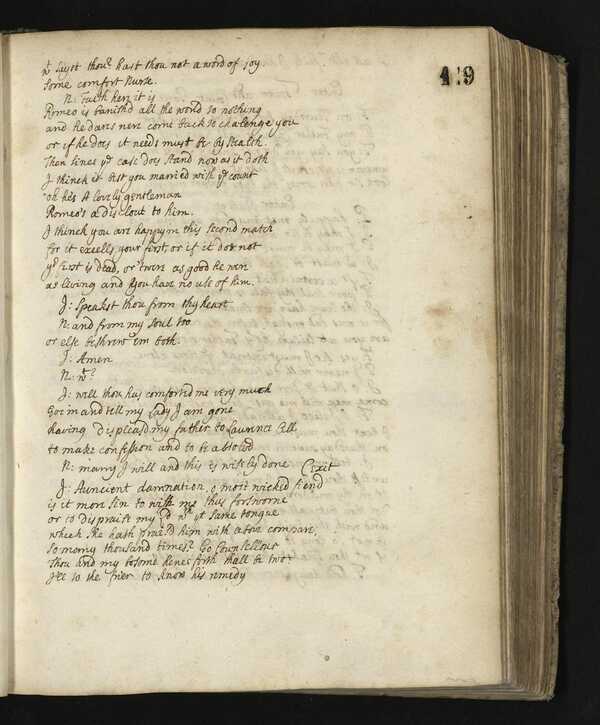 419
wt sayst thou? hast thou not a word of joy.
some comfort Nurse.
N: Faith here it is
Romeo is banishd all the world to nothing
and he dares nere come back to chalenge you
or if he does it needs must be by stealth.
Then sines ye case dos stand now as it doth
I thinck it best you married with ye count
oh hes A lovely gentleman
Romeo's a disclout to him.
I thinck you are happy in this second match
for it excells your first, or if it dos not
yr first is dead, or twere as good he were
as living and you have no use of him.
J: Speakst thou from thy heart
N: and from my soul too
or else beshrew em both.
J: Amen
N: wt?
J: well thou has comforted me very much
Goe in and tell my Lady I am gone
having displeasd my father to Laurence Cell
to make confession and to be absolvd
N: marry I will and this is wisely done (exit
J: Auncient damnation, o most wicked fiend
is it more sin to wish me thus forsworne
or to dispraise my Ld wt yt same tongue
which she hath prais'd him with above compare,
So many thousand times? Go Counsellour
Thou and my bosome hence forth shall be two
Ile to the frier to know his remedy